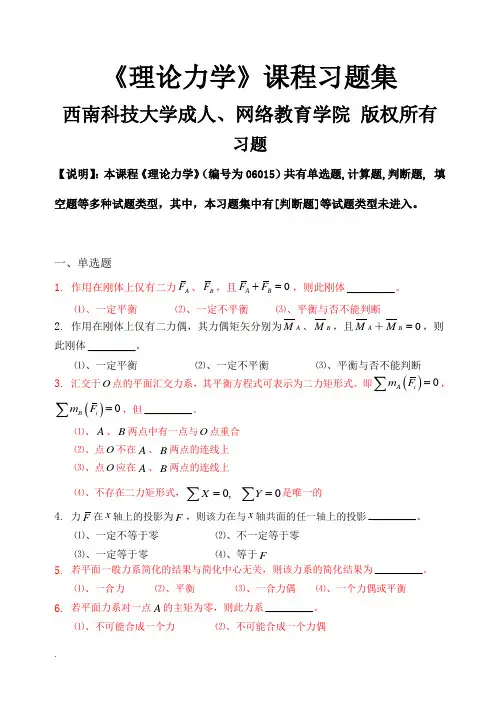 《理论力学》课程习题集
西南科技大学成人、网络教育学院 版权所有
习题
【说明】：本课程《理论力学》（编号为06015）共有单选题,计算题,判断题, 填
空题等多种试题类型，其中，本习题集中有[判断题]等试题类型未进入。
一、单选题
1. 作用在刚体上仅有二力F̅_A、F̅_B，且F̅_A+F̅_B=0，则此刚体________。
⑴、一定平衡 ⑵、一定不平衡 ⑶、平衡与否不能判断
2. 作用在刚体上仅有二力偶，其力偶矩矢分别为M̅_A、M̅_B，且M̅_A＋M̅_B=0，则
此刚体________。
⑴、一定平衡 ⑵、一定不平衡 ⑶、平衡与否不能判断
3. 汇交于O点的平面汇交力系，其平衡方程式可表示为二力矩形式。即∑m_A(F̅_i)=0，
∑m_B(F̅_i)=0，但________。
⑴、A、B两点中有一点与O点重合
⑵、点O不在A、B两点的连线上
⑶、点O应在A、B两点的连线上
⑷、不存在二力矩形式，∑X=0, ∑Y=0是唯一的
4. 力F̅在x轴上的投影为F，则该力在与x轴共面的任一轴上的投影________。
⑴、一定不等于零 ⑵、不一定等于零
⑶、一定等于零 ⑷、等于F
5. 若平面一般力系简化的结果与简化中心无关，则该力系的简化结果为________。
⑴、一合力 ⑵、平衡 ⑶、一合力偶 ⑷、一个力偶或平衡
6. 若平面力系对一点A的主矩为零，则此力系________。
⑴、不可能合成一个力 ⑵、不可能合成一个力偶
.